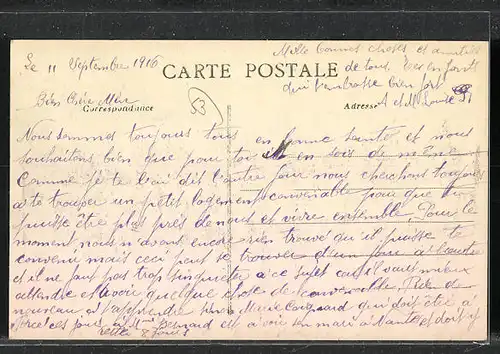 Le 11 Septembre 1916
Mille bonnes choses et amitiés
de tous. Tes enfants
qui t'embrasse bien fort
A et M Louise
CARTE POSTALE
Bien Chère Mère
Correspondance
Adresse
53
Nous sommes toujours tous en bonne santé et nous
souhaitons bien que pour toi il en soit de même
Comme je te l'ai dit l'autre jour nous cherchons toujours
à te trouver un petit logement convenable pour que tu
puisse être plus près de nous et vivre ensemble. Pour le
moment nous n'avons encore rien trouvé qu'il puisse te
convenir mais ceci peut se trouver d'un jour à l'autre
et il ne faut pas trop s'inquiéter à ce sujet car il vaut mieux
attendre et avoir quelque chose de convenable. Rien de
nouveau à t'apprendre qui doit être à
ces jours Bernard est à voir son mari à Nantes et doit y
rester 8 jours